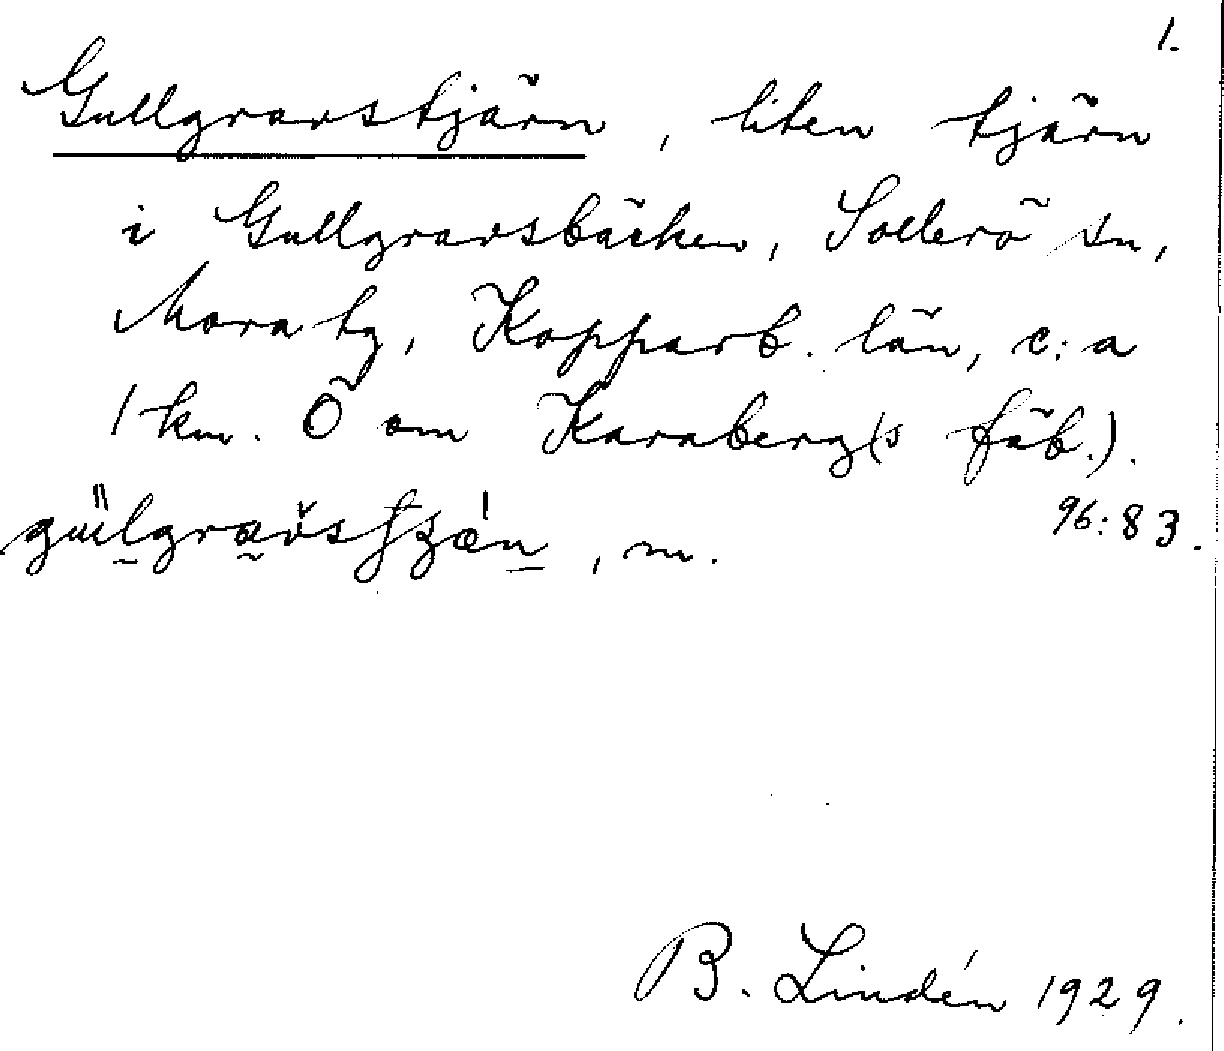 1.
Gullgravstjärn, liten tjärn
i Gullgravsbäcken, Sollerö sn,
Mora tg, Kopparb. län, c:a
1 km. Ö om Karaberg(s fäb.).
96:83.
, m.
B. Lindén 1929.